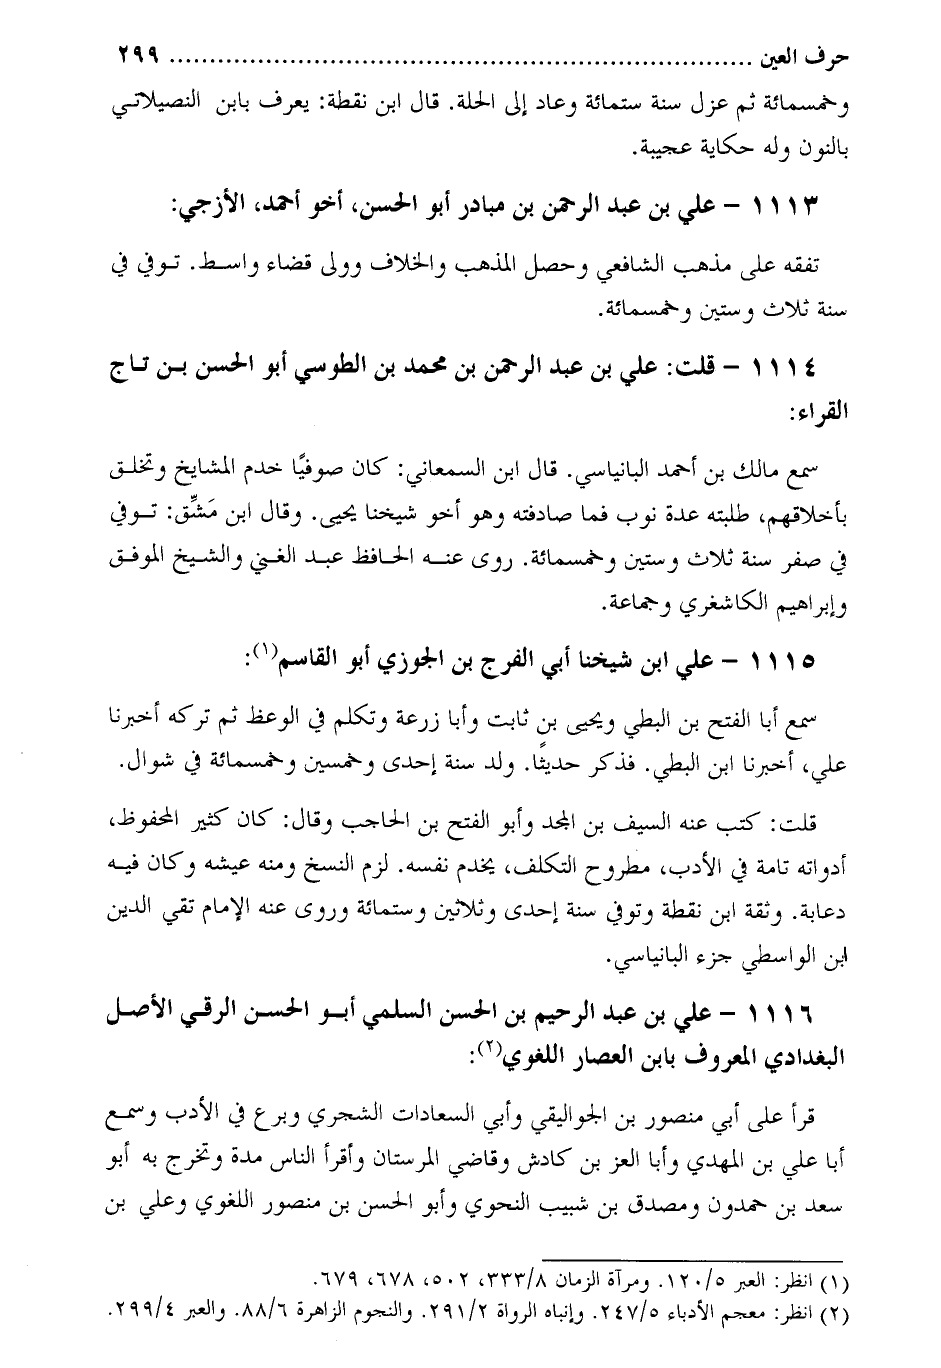 حرف العين ........................................................................ ٢٩٩
وخمسمائة ثم عزل سنة ستمائة وعاد إلى الحلة. قال ابن نقطة: يعرف بابن النصيلاتي
بالنون وله حكاية عجيبة.
١١١٣ – علي بن عبد الرحمن بن مبادر أبو الحسن، أخو أحمد، الأزجي:
تفقه على مذهب الشافعي وحصل المذهب والخلاف وولى قضاء واسط. توفي في
سنة ثلاث وستين وخمسمائة.
١١١٤ – قلت: علي بن عبد الرحمن بن محمد بن الطوسي أبو الحسن بن تاج
القراء:
سمع مالك بن أحمد البانياسي. قال ابن السمعاني: كان صوفيًا خدم المشايخ وتخلق
بأخلاقهم، طلبته عدة نوب فما صادفته وهو أخو شيخنا يحيى. وقال ابن مَشِّق: توفي
في صفر سنة ثلاث وستين وخمسمائة. روى عنه الحافظ عبد الغني والشيخ الموفق
وإبراهيم الكاشغري وجماعة.
١١١٥ – علي ابن شيخنا أبي الفرج بن الجوزي أبو القاسم(١):
سمع أبا الفتح بن البطي ويحيى بن ثابت وأبا زرعة وتكلم في الوعظ ثم تركه أخبرنا
علي، أخبرنا ابن البطي. فذكر حديثًا. ولد سنة إحدى وخمسين وخمسمائة في شوال.
قلت: كتب عنه السيف بن المجد وأبو الفتح بن الحاجب وقال: كان كثير المحفوظ،
أدواته تامة في الأدب، مطروح التكلف، يخدم نفسه. لزم النسخ ومنه عيشه وكان فيه
دعابة. وثقة ابن نقطة وتوفي سنة إحدى وثلاثين وستمائة وروى عنه الإمام تقي الدين
ابن الواسطي جزء البانياسي.
١١١٦ – علي بن عبد الرحيم بن الحسن السلمي أبو الحسن الرقي الأصل
البغدادي المعروف بابن العصار اللغوي(٢):
قرأ على أبي منصور بن الجواليقي وأبي السعادات الشجري وبرع في الأدب وسمع
أبا علي بن المهدي وأبا العز بن كادش وقاضي المرستان وأقرأ الناس مدة وتخرج به أبو
سعد بن حمدون ومصدق بن شبيب النحوي وأبو الحسن بن منصور اللغوي وعلي بن
(١) انظر: العبر ١٢٠/٥. ومرآة الزمان ٣٣٣/٨، ٥٠٢، ٦٧٨، ٦٧٩.
(٢) انظر: معجم الأدباء ٢٤٧/٥. وإنباه الرواة ٢٩١/٢. والنجوم الزاهرة ٨٨/٦. والعبر ٢٩٩/٤.